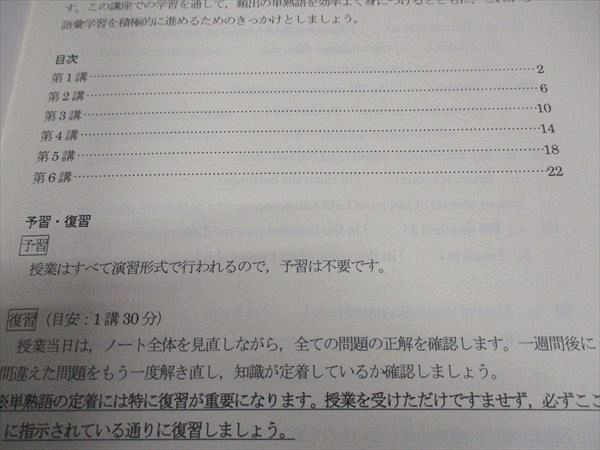 す。この講座での学習を通して，頻出の単熟語を効率よく身につけるとともに，これから
語彙学習を積極的に進めるためのきっかけとしましょう。
目次
第1講……………………………………………………………………2
第2講……………………………………………………………………6
第3講……………………………………………………………………10
第4講……………………………………………………………………14
第5講……………………………………………………………………18
第6講……………………………………………………………………22
予習・復習
予習
授業はすべて演習形式で行われるので，予習は不要です。
復習（目安：1講30分）
授業当日は，ノート全体を見直しながら，全ての問題の正解を確認します。一週間後に
間違えた問題をもう一度解き直し，知識が定着しているか確認しましょう。
※単熟語の定着には特に復習が重要になります。授業を受けただけですませず，必ずここ
に指示されている通りに復習しましょう。